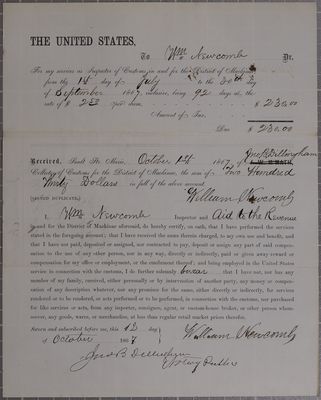 THE UNITED STATES,
To Wm. Newcomb Dr.
For my services as Inspector of Customs in and for the District of Mackinac
from the 1st day of July to the 30th day
of September 1867, inclusive, being 92 days at the
rate of $ 2.50 per diem, $ 230.00
Amount of Tax,
Due $ 230.00
Received, Sault Ste. Marie, October 1st 1867, of Jno. B. Dillingham
Collector of Customs for the District of Mackinac, the sum of Two Hundred
Thirty Dollars in full of the above account.
(SIGNED DUPLICATE.) William Newcomb
I Wm Newcomb Inspector and Aid to the Revenue
in and for the District of Mackinac aforesaid, do hereby certify, on oath, that I have performed the services
stated in the foregoing account; that I have received the same therein charged, to my own use and benefit, and
that I have not paid, deposited or assigned, nor contracted to pay, deposit or assign any part of said compensation
to the use of any other person, nor in any way, directly or indirectly, paid or given any reward or
compensation for my office or employment, or the emolument thereof; and being employed in the United States
service in connection with the customs, I do further solemnly swear that I have not, nor has any
member of my family, received, either personally or by intervention of another party, any money or compensation
of any description whatever, nor any promises for the same, either directly or indirectly, for services
rendered or to be rendered, or acts performed or to be performed, in connection with the customs, nor purchased
for like services or acts, from any importer, consignee, agent, or custom-house broker, or other person whomsoever,
any goods, wares, or merchandise, at less than regular retail market prices therefor.
Sworn and subscribed before me, this 12 day
of October 1867 William Newcomb
Jno B Dillingham
Notary Public